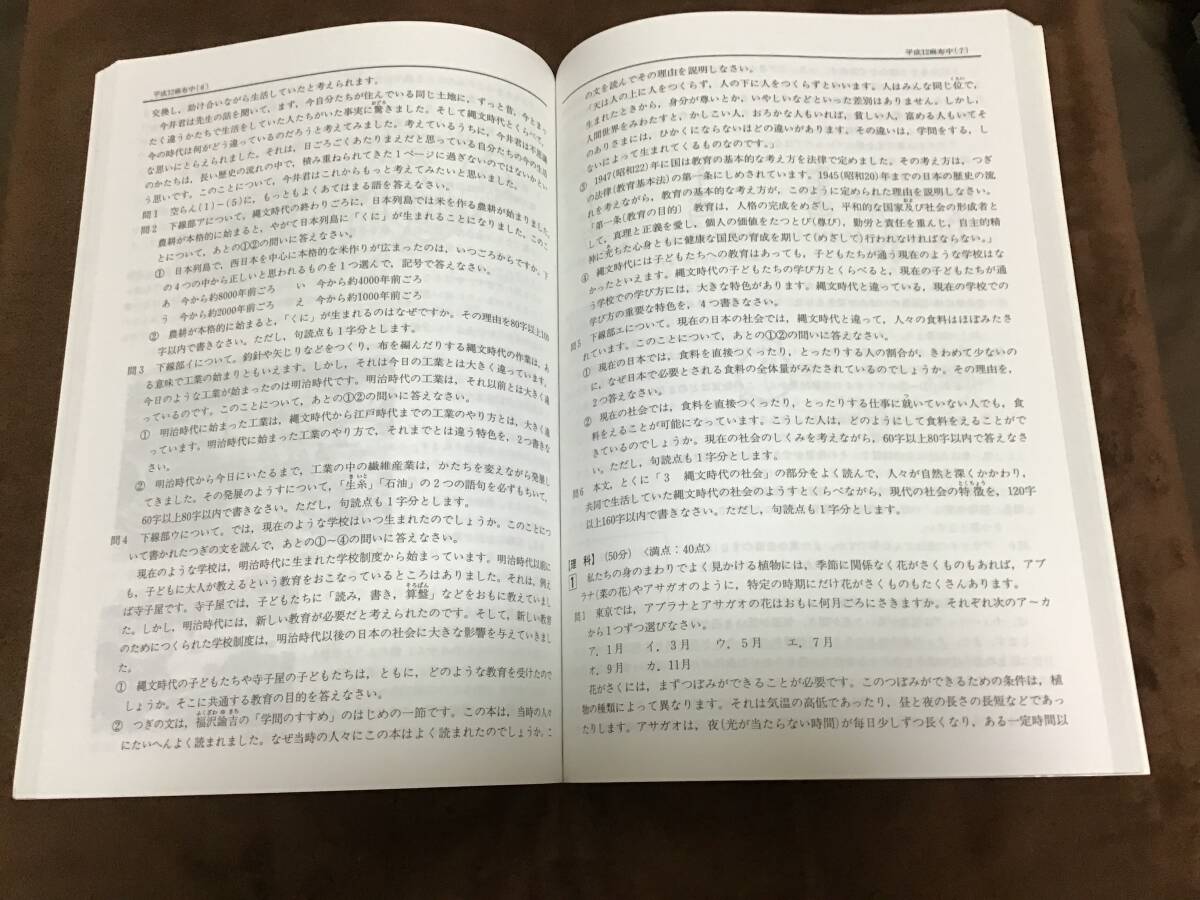 平成12麻布中(6)
交換し，助け合いながら生活していたと考えられます。
今井君は先生の話を聞いて，まず，今自分たちが住んでいる同じ土地に，ずっと昔，今とまっ
たく違うかたちで生活をしていた人たちがいた事実に驚きました。そして縄文時代とくらべて，
今の時代は何がどう違っているのだろうと考えてみました。考えているうちに，今井君は不思議
な思いにとらえられました。それは，日ごろごくあたりまえだと思っている自分たちの今の生活
のかたちは，長い歴史の流れの中で，積み重ねられてきた1ページに過ぎないのではないかとい
う思いです。このことについて，今井君はこれからもっと考えてみたいと思いました。
問1 空らん(1)～(5)に，もっともよくあてはまる語を答えなさい。
問2 下線部アについて。縄文時代の終わりごろに，日本列島では米を作る農耕が始まりました。
農耕が本格的に始まると，やがて日本列島に「くに」が生まれることになりました。このこ
とについて，あとの①②の問いに答えなさい。
① 日本列島で，西日本を中心に本格的な米作りが広まったのは，いつごろからですか。下
の4つの中から正しいと思われるものを1つ選んで，記号で答えなさい。
あ 今から約8000年前ごろ い 今から約4000年前ごろ
う 今から約2000年前ごろ え 今から約1000年前ごろ
② 農耕が本格的に始まると，「くに」が生まれるのはなぜですか。その理由を80字以上100
字以内で書きなさい。ただし，句読点も1字分とします。
問3 下線部イについて。釣針や矢じりなどをつくり，布を編んだりする縄文時代の作業は，あ
る意味で工業の始まりともいえます。しかし，それは今日の工業とは大きく違っています。
今日のような工業が始まったのは明治時代です。明治時代の工業は，それ以前とは大きく違
っているのです。このことについて，あとの①②の問いに答えなさい。
① 明治時代に始まった工業は，縄文時代から江戸時代までの工業のやり方とは，大きく違
っています。明治時代に始まった工業のやり方で，それまでとは違う特色を，2つ書きな
さい。
② 明治時代から今日にいたるまで，工業の中の繊維産業は，かたちを変えながら発展し
てきました。その発展のようすについて，「生糸」「石油」の2つの語句を必ずもちいて，
60字以上80字以内で書きなさい。ただし，句読点も1字分とします。
問4 下線部ウについて。では，現在のような学校はいつ生まれたのでしょうか。このことにつ
いて書かれたつぎの文を読んで，あとの①～④の問いに答えなさい。
現在のような学校は，明治時代に生まれた学校制度から始まっています。明治時代以前に
も，子どもに大人が教えるという教育をおこなっているところはありました。それは，例え
ば寺子屋です。寺子屋では，子どもたちに「読み，書き，算盤」などをおもに教えていまし
た。しかし，明治時代には，新しい教育が必要だと考えられたのです。そして，新しい教育
のためにつくられた学校制度は，明治時代以後の日本の社会に大きな影響を与えていきまし
た。
① 縄文時代の子どもたちや寺子屋の子どもたちは，ともに，どのような教育を受けたので
しょうか。そこに共通する教育の目的を答えなさい。
② つぎの文は，福沢諭吉の「学問のすすめ」のはじめの一節です。この本は，当時の人々
にたいへんよく読まれました。なぜ当時の人々にこの本はよく読まれたのでしょうか。こ
平成12麻布中(7)
の文を読んでその理由を説明しなさい。
「天は人の上に人をつくらず，人の下に人をつくらずといいます。人はみんな同じ位で，
生まれたときから，身分が尊いとか，いやしいなどといった差別はありません。しかし，
人間世界をみわたすと，かしこい人，おろかな人もいれば，貧しい人，富める人もいてそ
のありさまには，ひかくにならないほどの違いがあります。その違いは，学問をする，し
ないによって生まれてくるものなのです。」
③ 1947(昭和22)年に国は教育の基本的な考え方を法律で定めました。その考え方は，つぎ
の法律(教育基本法)の第一条にしめされています。1945(昭和20)年までの日本の歴史の流
れを考えながら，教育の基本的な考え方が，このように定められた理由を説明しなさい。
「第一条〔教育の目的〕 教育は，人格の完成をめざし，平和的な国家及び社会の形成者と
して，真理と正義を愛し，個人の価値をたつとび(尊び)，勤労と責任を重んじ，自主的精
神に充ちた心身ともに健康な国民の育成を期して(めざして)行われなければならない。」
④ 縄文時代には子どもたちへの教育はあっても，子どもたちが通う現在のような学校はな
かったといえます。縄文時代の子どもたちの学び方とくらべると，現在の子どもたちが通
う学校での学び方には，大きな特色があります。縄文時代と違っている，現在の学校での
学び方の重要な特色を，4つ書きなさい。
問5 下線部エについて。現在の日本の社会では，縄文時代と違って，人々の食料はほぼみたさ
れています。このことについて，あとの①②の問いに答えなさい。
① 現在の日本では，食料を直接つくったり，とったりする人の割合が，きわめて少ないの
に，なぜ日本で必要とされる食料の全体量がみたされているのでしょうか。その理由を，
2つ答えなさい。
② 現在の社会では，食料を直接つくったり，とったりする仕事に就いていない人でも，食
料をえることが可能になっています。こうした人は，どのようにして食料をえることがで
きているのでしょうか。現在の社会のしくみを考えながら，60字以上80字以内で答えなさ
い。ただし，句読点も1字分とします。
問6 本文，とくに「3 縄文時代の社会」の部分をよく読んで，人々が自然と深くかかわり，
共同で生活していた縄文時代の社会のようすとくらべながら，現代の社会の特徴を，120字
以上160字以内で書きなさい。ただし，句読点も1字分とします。
【理 科】 (50分) 〈満点：40点〉
1 私たちの身のまわりでよく見かける植物には，季節に関係なく花がさくものもあれば，アブ
ラナ(菜の花)やアサガオのように，特定の時期にだけ花がさくものもたくさんあります。
問1 東京では，アブラナとアサガオの花はおもに何月ごろにさきますか。それぞれ次のア～カ
から1つずつ選びなさい。
ア．1月 イ．3月 ウ．5月 エ．7月
オ．9月 カ．11月
花がさくには，まずつぼみができることが必要です。このつぼみができるための条件は，植
物の種類によって異なります。それは気温の高低であったり，昼と夜の長さの長短などであっ
たりします。アサガオは，夜(光が当たらない時間)が毎日少しずつ長くなり，ある一定時間以